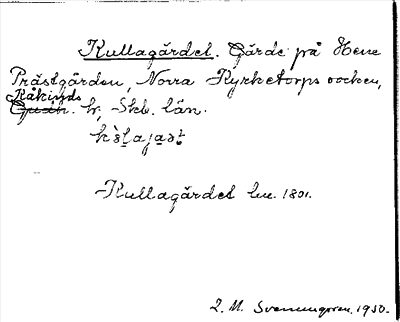 Kullagärdet. Gärde på Hene
Prästgården, Norra Kyrketorps socken,
Kåkinds
hr, Skb. län.
Kullagärdet lm. 1801.
I. M. Svenungsson. 1930.